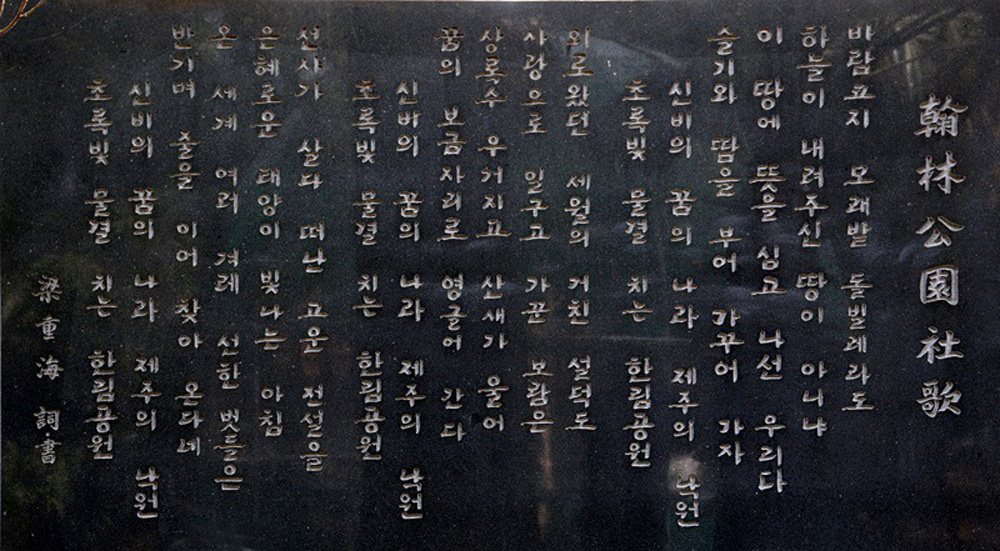 翰林公園社歌
바람코지 모래밭 돌빌레라도
하늘이 내려주신 땅이 아니냐
이 땅에 뜻을 심고 나선 우리다
슬기와 땀을 부어 가꾸어 가자
신비의 꿈의 나라 제주의 낙원
초록빛 물결 치는 한림공원
외로왔던 세월의 거친 설덕도
사랑으로 일구고 가꾼 보람은
상록수 우거지고 산새가 울어
꿈의 보금자리로 영글어 간다
신비의 꿈의 나라 제주의 낙원
초록빛 물결 치는 한림공원
선사가 살다 떠난 고운 전설을
은혜로운 태양이 빛나는 아침
온 세계 여러 겨레 선한 벗들은
반기며 줄을 이어 찾아 온다네
신비의 꿈의 나라 제주의 낙원
초록빛 물결 치는 한림공원
梁重海 詞書